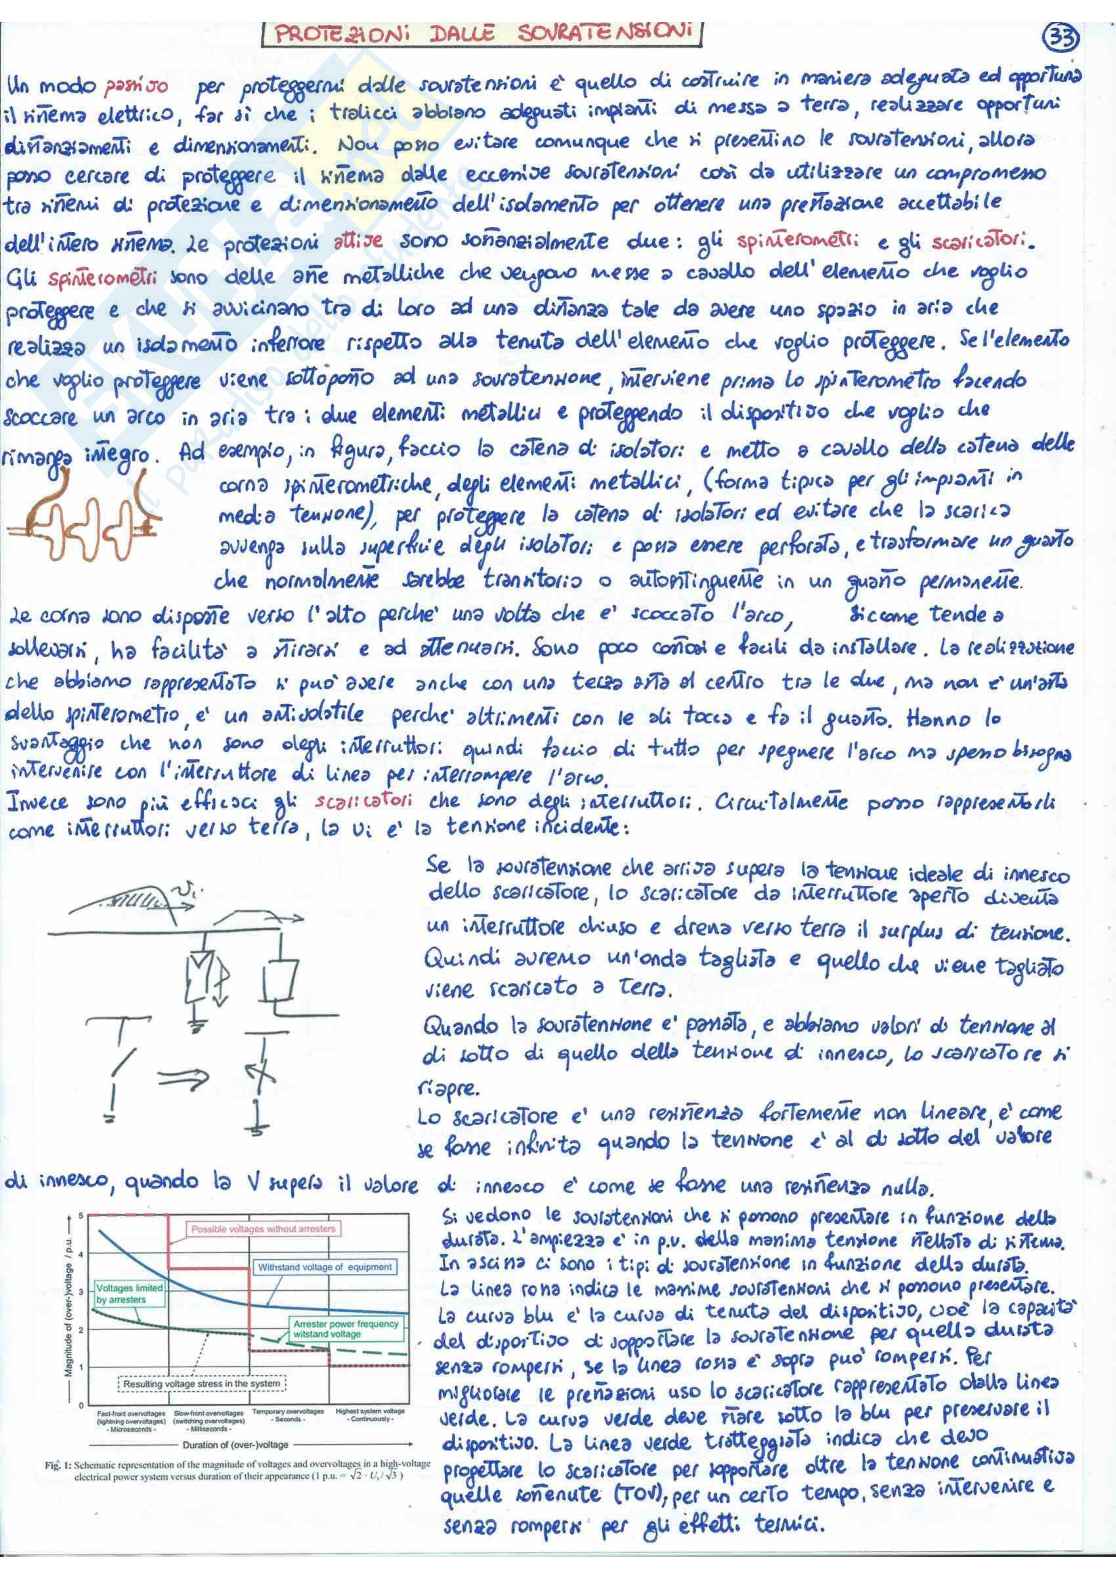 PROTEZIONI DALLE SOVRATENSIONI
33
Un modo passivo per proteggermi dalle sovratensioni è quello di costruire in maniera adeguata ed opportuna
il sistema elettrico, far sì che i tralicci abbiano adeguati impianti di messa a terra, realizzare opportuni
distanziamenti e dimensionamenti. Non posso evitare comunque che si presentino le sovratensioni, allora
posso cercare di proteggere il sistema dalle eccessive sovratensioni così da utilizzare un compromesso
tra sistemi di protezione e dimensionamento dell'isolamento per ottenere una prestazione accettabile
dell'intero sistema. Le protezioni attive sono sostanzialmente due: gli spinterometri e gli scaricatori.
Gli spinterometri sono delle aste metalliche che vengono messe a cavallo dell'elemento che voglio
proteggere e che si avvicinano tra di loro ad una distanza tale da avere uno spazio in aria che
realizza un isolamento inferiore rispetto alla tenuta dell'elemento che voglio proteggere. Se l'elemento
che voglio proteggere viene sottoposto ad una sovratensione, interviene prima lo spinterometro facendo
scoccare un arco in aria tra i due elementi metallici e proteggendo il dispositivo che voglio che
rimanga integro. Ad esempio, in figura, faccio la catena di isolatori e metto a cavallo della catena delle
corna spinterometriche, degli elementi metallici, (forma tipica per gli impianti in
media tensione), per proteggere la catena di isolatori ed evitare che la scarica
avvenga sulla superficie degli isolatori e possa essere perforata, e trasformare un guasto
che normalmente sarebbe transitorio o autoestinguente in un guasto permanente.
Le corna sono disposte verso l'alto perche' una volta che e' scoccato l'arco, siccome tende a
sollevarsi, ha facilita' a stirarsi e ad attenuarsi. Sono poco costosi e facili da installare. La realizzazione
che abbiamo rappresentato si puo' avere anche con una terza asta al centro tra le due, ma non e' un'asta
dello spinterometro, e' un antivolatile perche' altrimenti con le ali tocca e fa il guasto. Hanno lo
svantaggio che non sono degli interruttori quindi faccio di tutto per spegnere l'arco ma spesso bisogna
intervenire con l'interruttore di linea per interrompere l'arco.
Invece sono più efficaci gli scaricatori che sono degli interruttori. Circuitalmente posso rappresentarli
come interruttori verso terra, la Vi e' la tensione incidente:
Vi
Se la sovratensione che arriva supera la tensione ideale di innesco
dello scaricatore, lo scaricatore da interruttore aperto diventa
un interruttore chiuso e drena verso terra il surplus di tensione.
Quindi avremo un'onda tagliata e quello che viene tagliato
viene scaricato a terra.
Quando la sovratensione e' passata, e abbiamo valori di tensione al
di sotto di quello della tensione di innesco, lo scaricatore si
riapre.
Lo scaricatore e' una resistenza fortemente non lineare, e' come
se fosse infinita quando la tensione e' al di sotto del valore
di innesco, quando la V supera il valore di innesco e' come se fosse una resistenza nulla.
Si vedono le sovratensioni che si possono presentare in funzione della
durata. L'ampiezza e' in p.u. della massima tensione stellata di sistema.
In ascissa ci sono i tipi di sovratensione in funzione della durata.
La linea rossa indica le massime sovratensioni che si possono presentare.
La curva blu e' la curva di tenuta del dispositivo, cioè la capacita'
del dispositivo di sopportare la sovratensione per quella durata
senza rompersi, se la linea rossa e' sopra può rompersi. Per
migliorare le prestazioni uso lo scaricatore rappresentato dalla linea
verde. La curva verde deve stare sotto la blu per preservare il
dispositivo. La linea verde tratteggiata indica che devo
progettare lo scaricatore per sopportare oltre la tensione continuativa
quelle sostenute (TOV), per un certo tempo, senza intervenire e
senza rompersi per gli effetti termici.
Magnitude of (over-)voltage / p.u.
5
4
3
2
1
0
Possible voltages without arresters
Withstand voltage of equipment
Voltages limited
by arresters
Arrester power frequency
witstand voltage
Resulting voltage stress in the system
Fast-front overvoltages
(lightning overvoltages)
- Microseconds -
Slow-front overvoltages
(switching overvoltages)
- Milliseconds -
Temporary overvoltages
- Seconds -
Highest system voltage
- Continuously -
Duration of (over-)voltage
Fig. 1: Schematic representation of the magnitude of voltages and overvoltages in a high-voltage
electrical power system versus duration of their appearance (1 p.u. = √2 · Us/√3 )